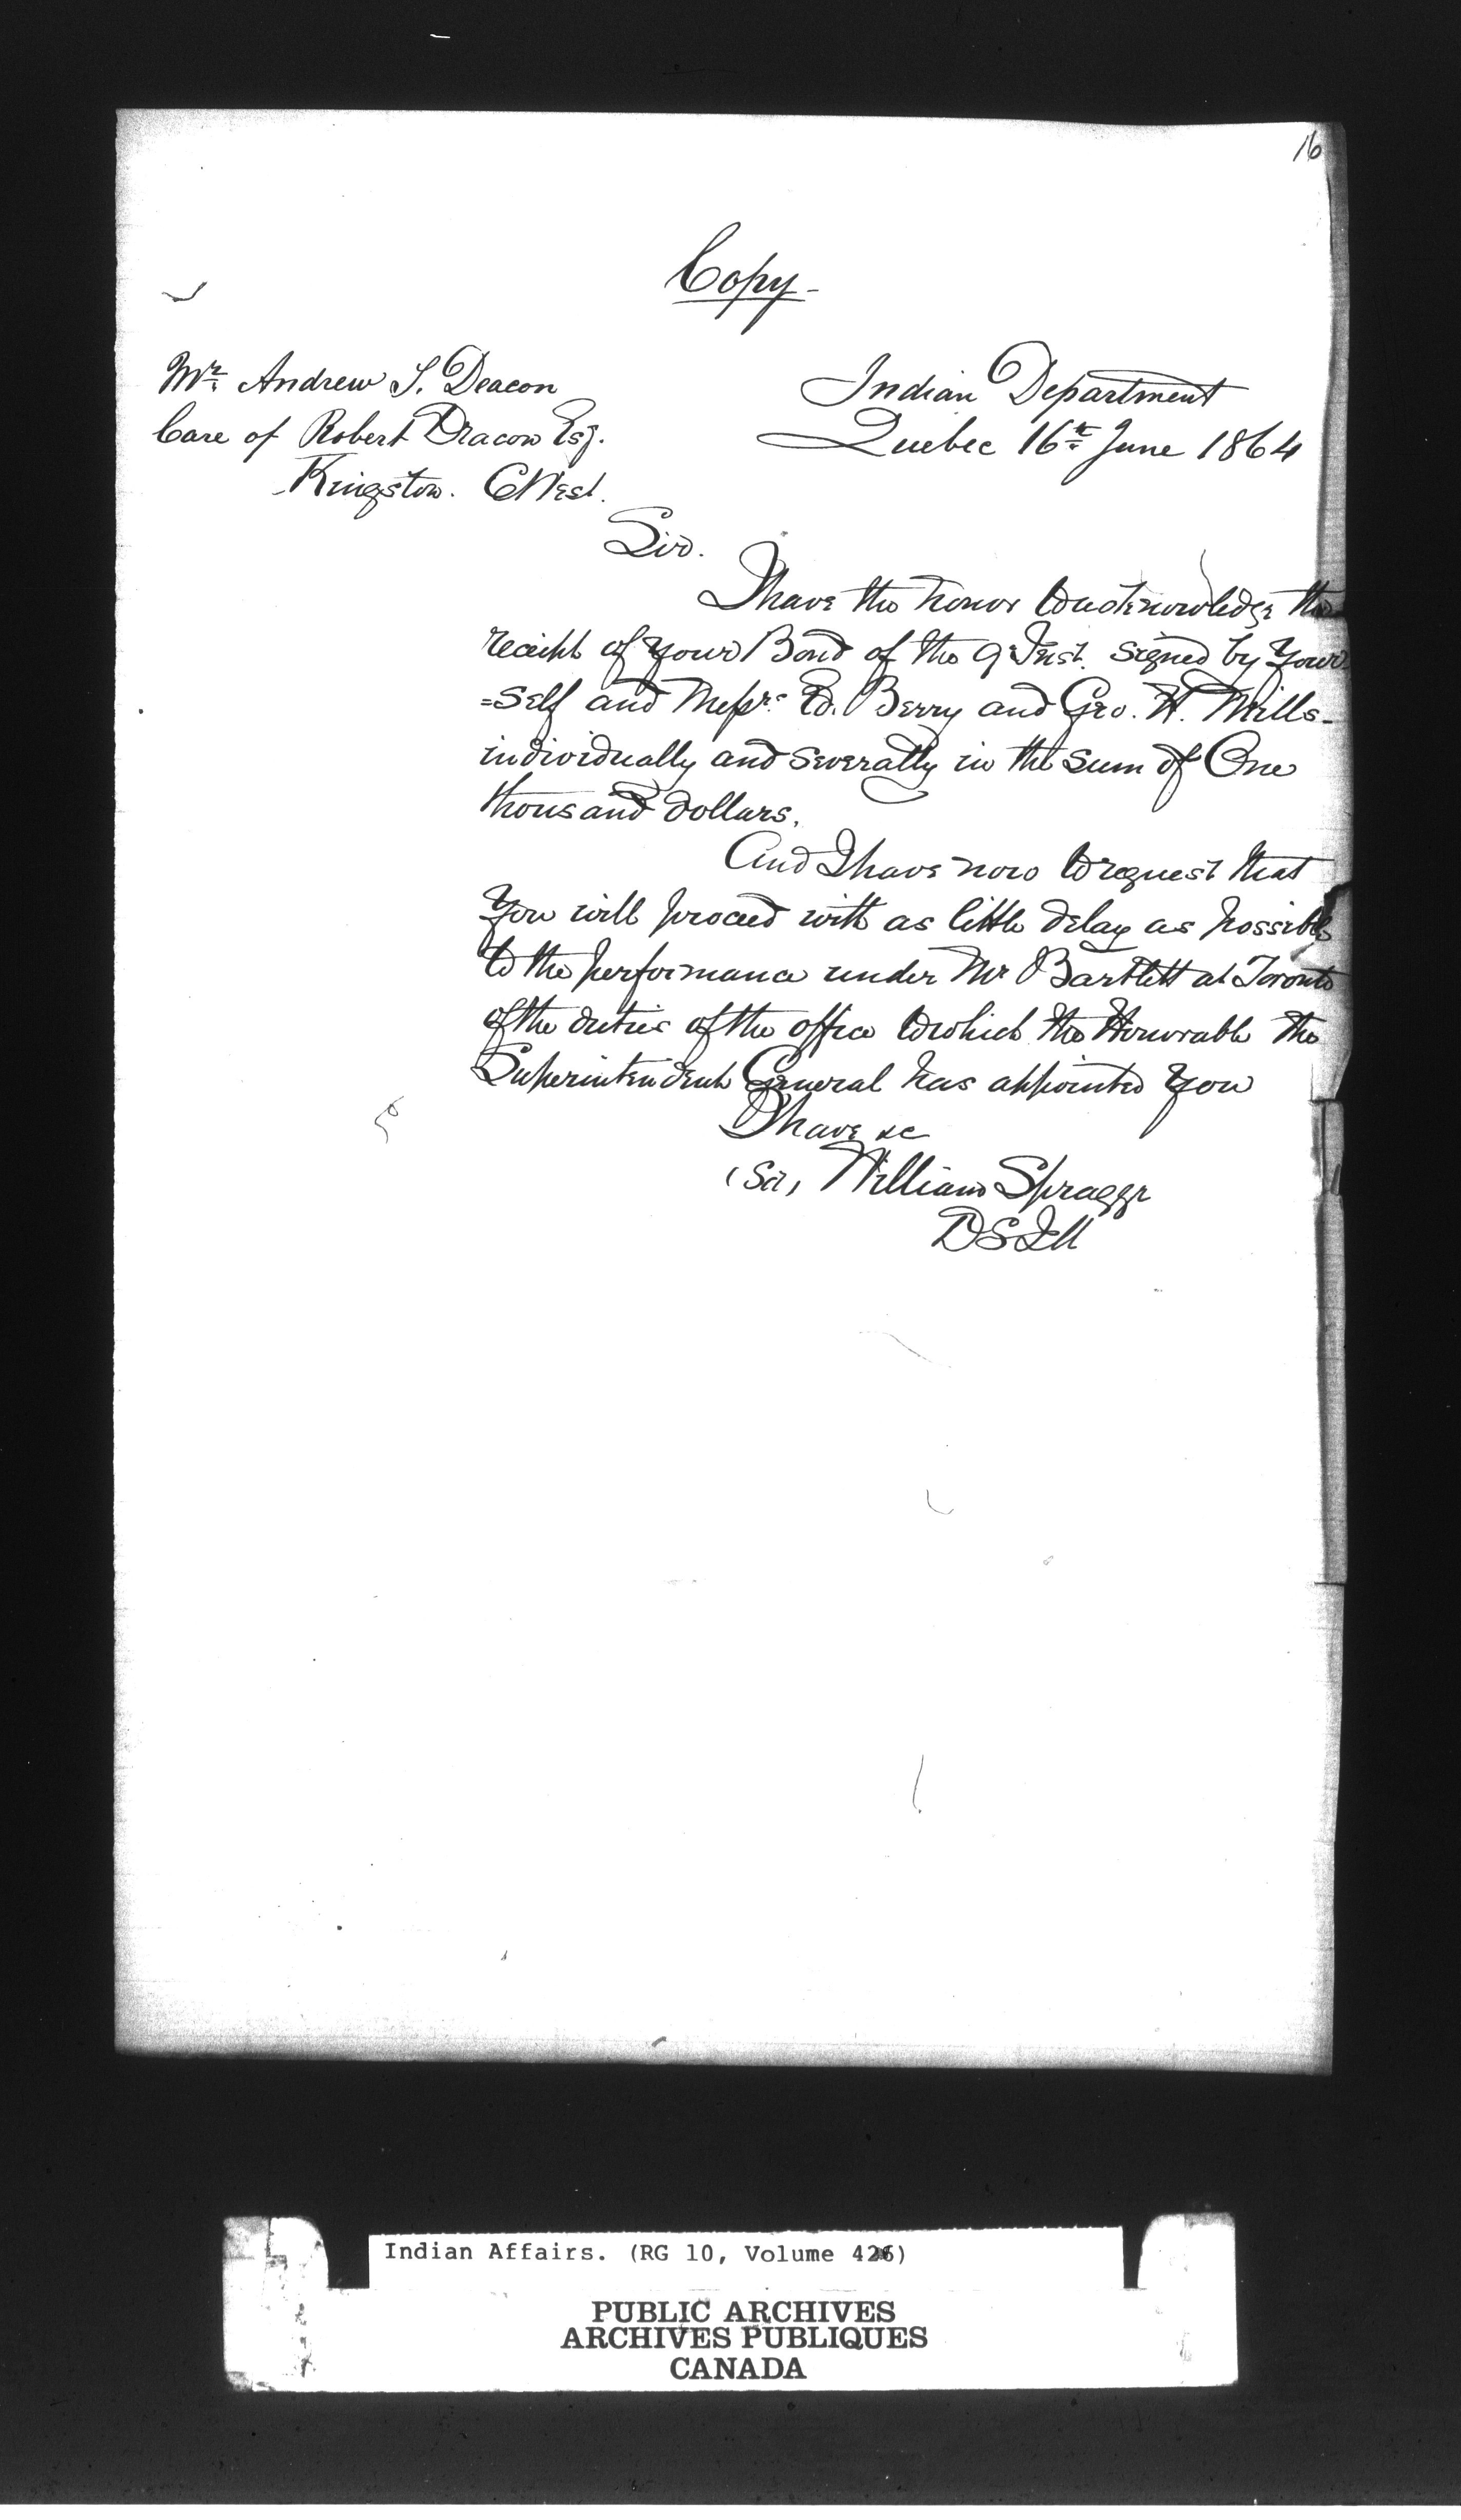 16
Copy -
Mr. Andrew S. Deacon
Care of Robert Deacon Esq.
Kingston. C West.
Indian Department
Quebec 16th June 1864
Sir.
I have the honor to acknowledge the
receipt of your Bond of the 9 Inst. signed by your
=self and Messrs Ed. Berry and Geo. H. Mills-
individually and severally in the sum of One
thousand dollars.
And I have now to request that
you will proceed with as little delay as possible
to the performance under Mr Bartlett at Toronto
of the duties of the office to which the Honorable the
Superintendent General has appointed you
I have &c
(Sd) William Spragge
DSIA
Indian Affairs. (RG 10, Volume 426)
PUBLIC ARCHIVES
ARCHIVES PUBLIQUES
CANADA